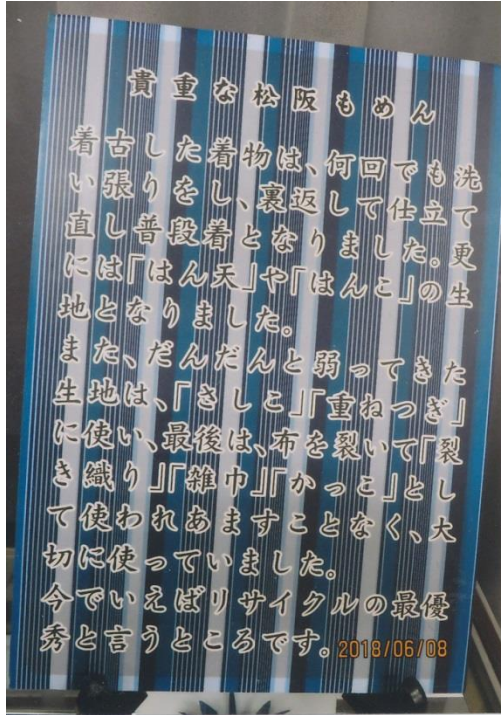 貴重な松阪もめん
着古した着物は、何回でも洗
い張りをし、裏返して仕立て
直し普段着となりました。更
には「はん天」や「はんこ」の生
地となりました。
また、だんだんと弱ってきた
生地は、「さしこ」「重ねつぎ」
に使い、最後は、布を裂いて「裂
き織り」「雑巾」「かっこ」とし
て使われあますことなく、大
切に使っていました。
今でいえばリサイクルの最優
秀と言うところです。
2018/06/08